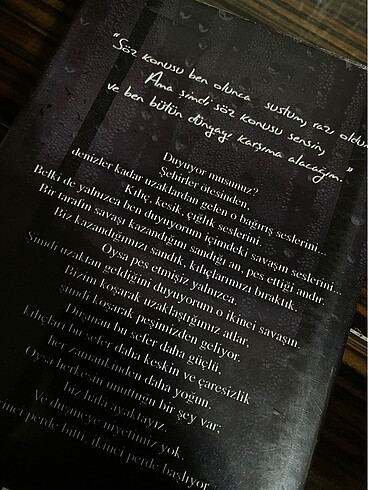 "Söz konusu ben olunca sustum, razı oldum
Ama şimdi söz konusu sensin,
ve ben bütün dünyayı karşıma alacağım."
Duyuyor musunuz?
Şehirler ötesinden,
denizler kadar uzaklardan gelen o bağırış seslerini...
Kılıç, kesik, çığlık seslerini.
Belki de yalnızca ben duyuyorum içimdeki savaşın seslerini...
Bir tarafın savaşı kazandığını sandığı an, pes ettiği andır.
Biz kazandığımızı sandık, kılıçlarımızı bıraktık.
Oysa pes etmişiz yalnızca.
Şimdi uzaktan geldiğini duyuyorum o ikinci savaşın.
Bizim koşarak uzaklaştığımız atlar,
şimdi koşarak peşimizden geliyor.
Düşman bu sefer daha güçlü,
kılıçları bu sefer daha keskin ve çaresizlik
her zamankinden daha yoğun.
Oysa herkesin unuttuğu bir şey var;
biz hâlâ ayaktayız.
Ve düşmeye niyetimiz yok,
perde bitti, ikinci perde başlıyor...